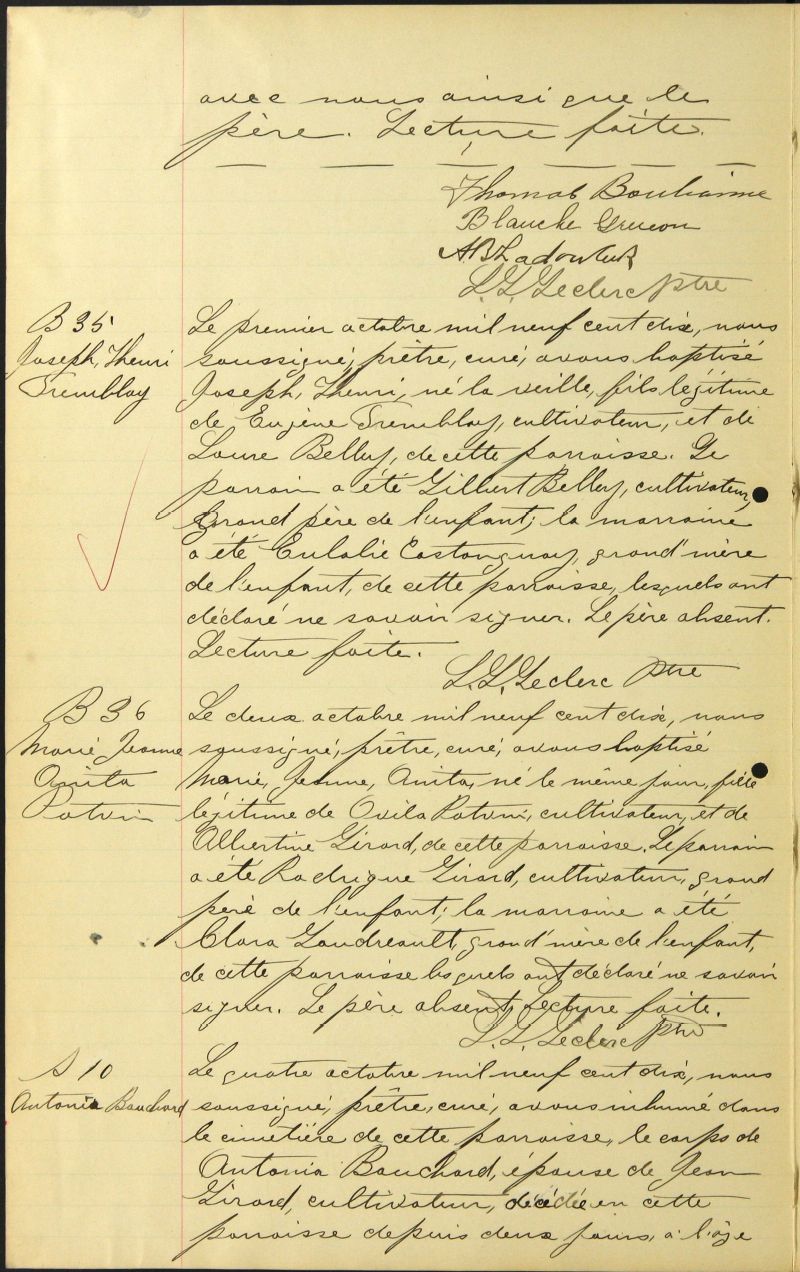 avec nous ainsi que le
père. Lecture faite.
Thomas Boulianne
Blanche Grenon
L. G. Leclerc Ptre
B 35
Joseph, Henri
Tremblay
Le premier octobre mil neuf cent dix, nous
soussigné, prêtre, curé, avons baptisé
Joseph, Henri, né la veille, fils légitime
de Eugène Tremblay, cultivateur, et de
Laure Belley, de cette paroisse. Le
parrain a été Gilbert Belley, cultivateur,
grand père de l'enfant; la marraine
a été Eulalie Castonguay, grand'mère
de l'enfant, de cette paroisse, lesquels ont
déclaré ne savoir signer. Le père absent.
Lecture faite.
L. G. Leclerc Ptre
B 36
Marie Jeanne
Anita
Potvin
Le deux octobre mil neuf cent dix, nous
soussigné, prêtre, curé, avons baptisé
Marie, Jeanne, Anita, né le même jour, fille
légitime de Ovila Potvin, cultivateur, et de
Albertine Girard, de cette paroisse. Le parrain
a été Rodrigue Girard, cultivateur, grand
père de l'enfant; la marraine a été
Clara Gaudreault, grand'mère de l'enfant,
de cette paroisse lesquels ont déclaré ne savoir
signer. Le père absent, Lecture faite.
L. G. Leclerc Ptre
S 10
Antonia Bouchard
Le quatre octobre mil neuf cent dix, nous
soussigné, prêtre, curé, avons inhumé dans
le cimetière de cette paroisse, le corps de
Antonia Bouchard, épouse de Jean
Girard, cultivateur, décédée en cette
paroisse depuis deux jours, à l'âge